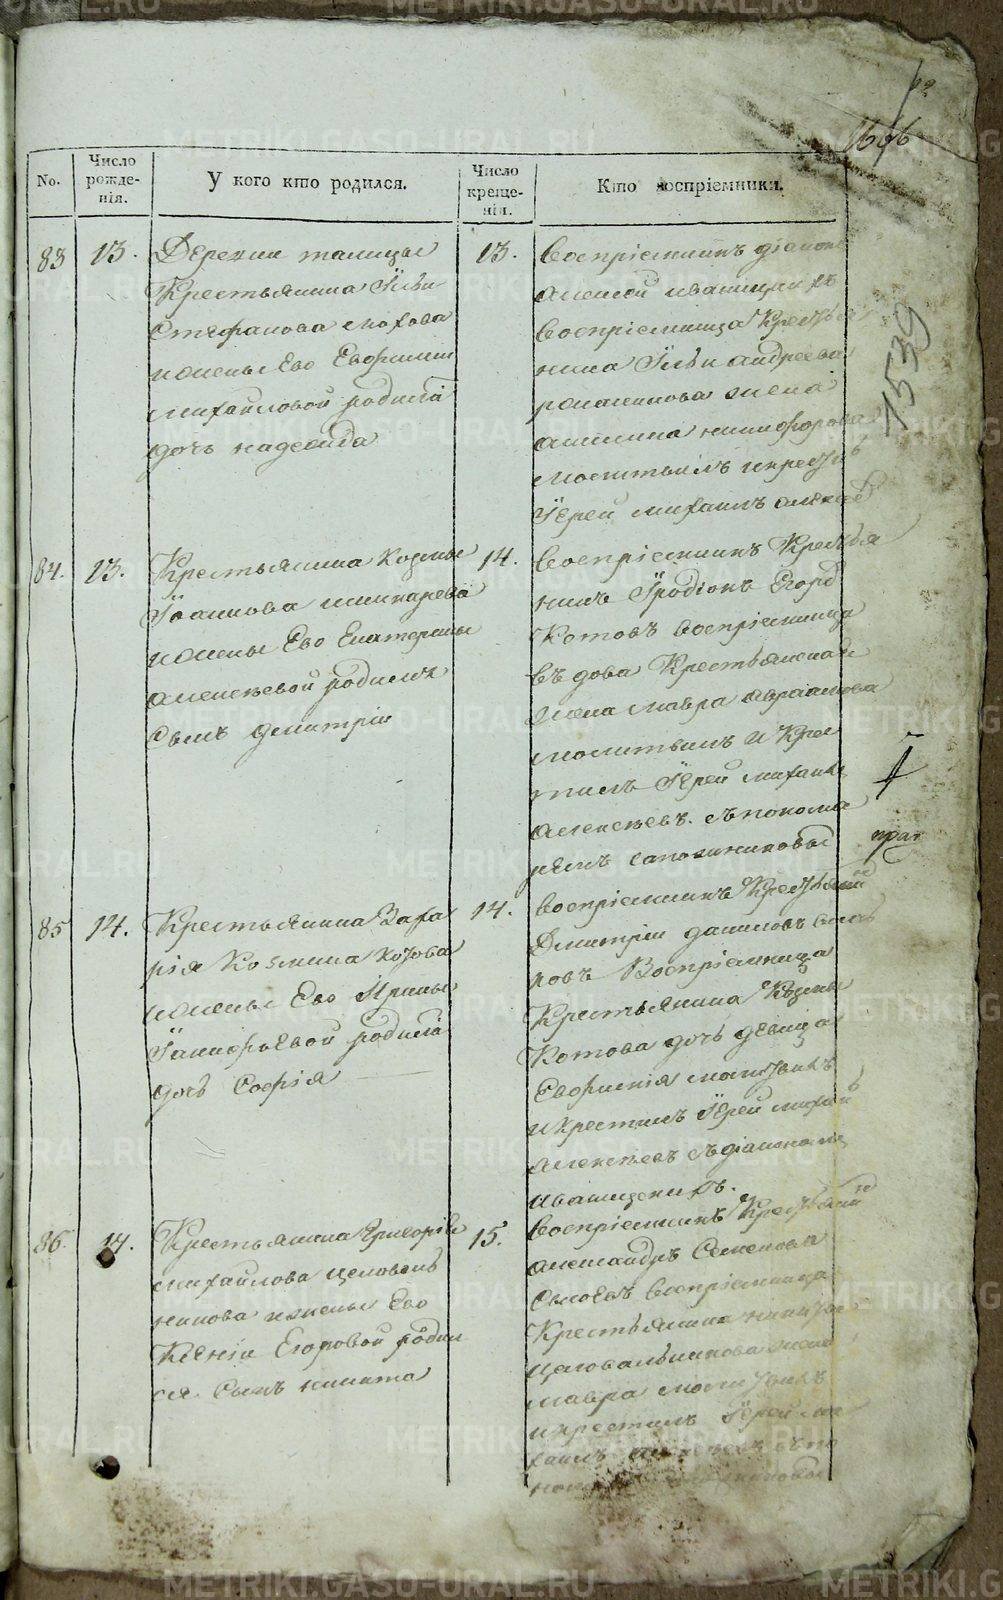 1616
No.
Число рожде-
нія.
У кого кто родился.
Число креще-
нія.
Кто воспріемники.
83
13.
Деревни талицы
Крестьянина Ильи
Стефанова
и жены Ево Евфимии
михайловой родила
дочь надежда
13.
Воспріемникъ діакон
алексей
Воспріемница Крестья
нина Ильи андреева
романикова жена
никифорова
молитвилъ и крестилъ
Іерей михаилъ алексеев
1539
84.
13.
Крестьянина Козмы
Іоаннова шинкарева
и жены Ево Екатерины
алексеевой родился
сынъ димитріи
14.
Воспріемникъ Крестья
нинъ Іродіонъ Егоров
Котовъ воспріемница
въдова Крестьянская
жена мавра авраамова
молитвилъ и Крес
тилъ Іерей михаилъ
алексеевъ. съ понома
ремъ сапожниковы
85
14.
Крестьянина Заха
рія Козмина
и жены Ево Ирины
родила
дочь Софія
14.
воспріемникъ Крестьянин
Дмитріи даниловъ
ровъ Воспріемница
Крестьянина Козмы
Котова дочь девица
Евфимія молитвилъ
и крестилъ Іерей михаил
алексеевъ съ діакономъ
86.
14.
Крестьянина Григорія
михайлова целоваль
никова и жены Ево
Ксеніи Егоровой родил
ся. сынъ никита
15.
Воспріемникъ Крестьянин
александръ Семенова
воспріемница
Крестьянина никиты
целовальникова жена
мавра молитвилъ
и крестилъ Іерей ми
хаилъ алексеевъ съ по
METRIKI.GASO-URAL.RU